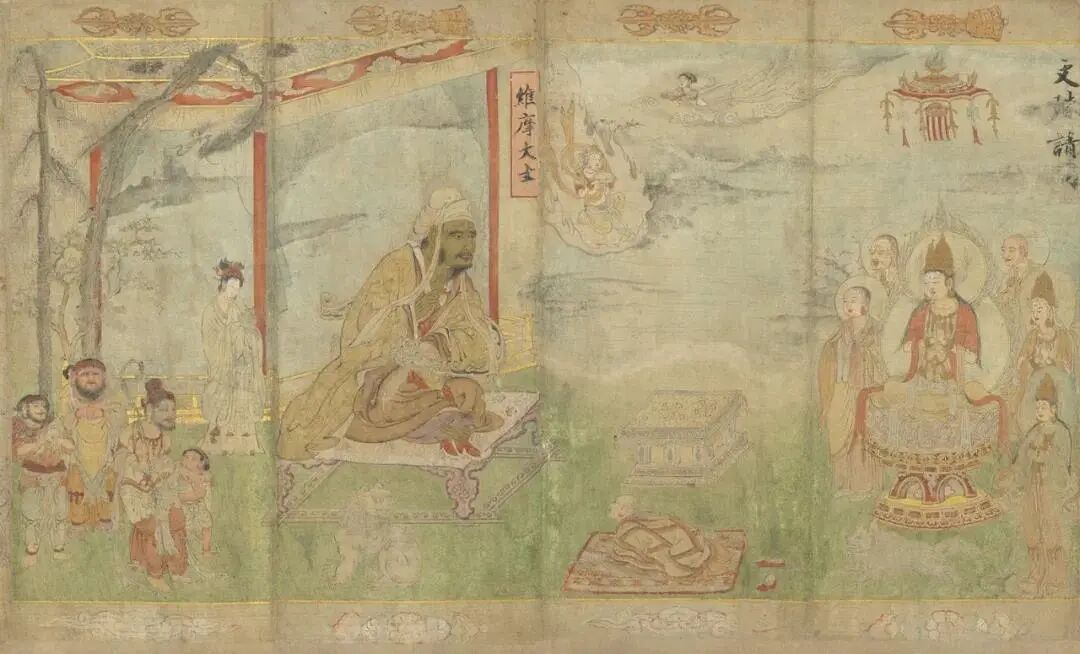 文殊請問
維摩大士